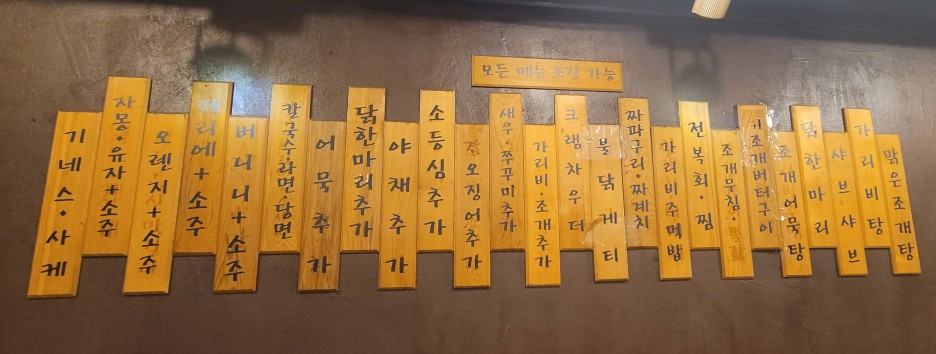 모든 메뉴 포장 가능
기네스·사케
자몽·유자+소주
오렌지+소주
페리에+소주
버니니+소주
칼국수·라면·당면
어묵추가
닭한마리추가
야채추가
소등심추가
오징어추가
새우·쭈꾸미추가
가리비조개추가
크램차우더
불닭게티
짜파구리·짜계치
가리비주먹밥
전복회·찜
조개무침
키조개버터구이
조개어묵탕
닭한마리
샤브샤브
가리비탕
맑은조개탕